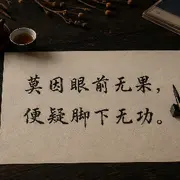 莫因眼前无果，
便疑脚下无功。